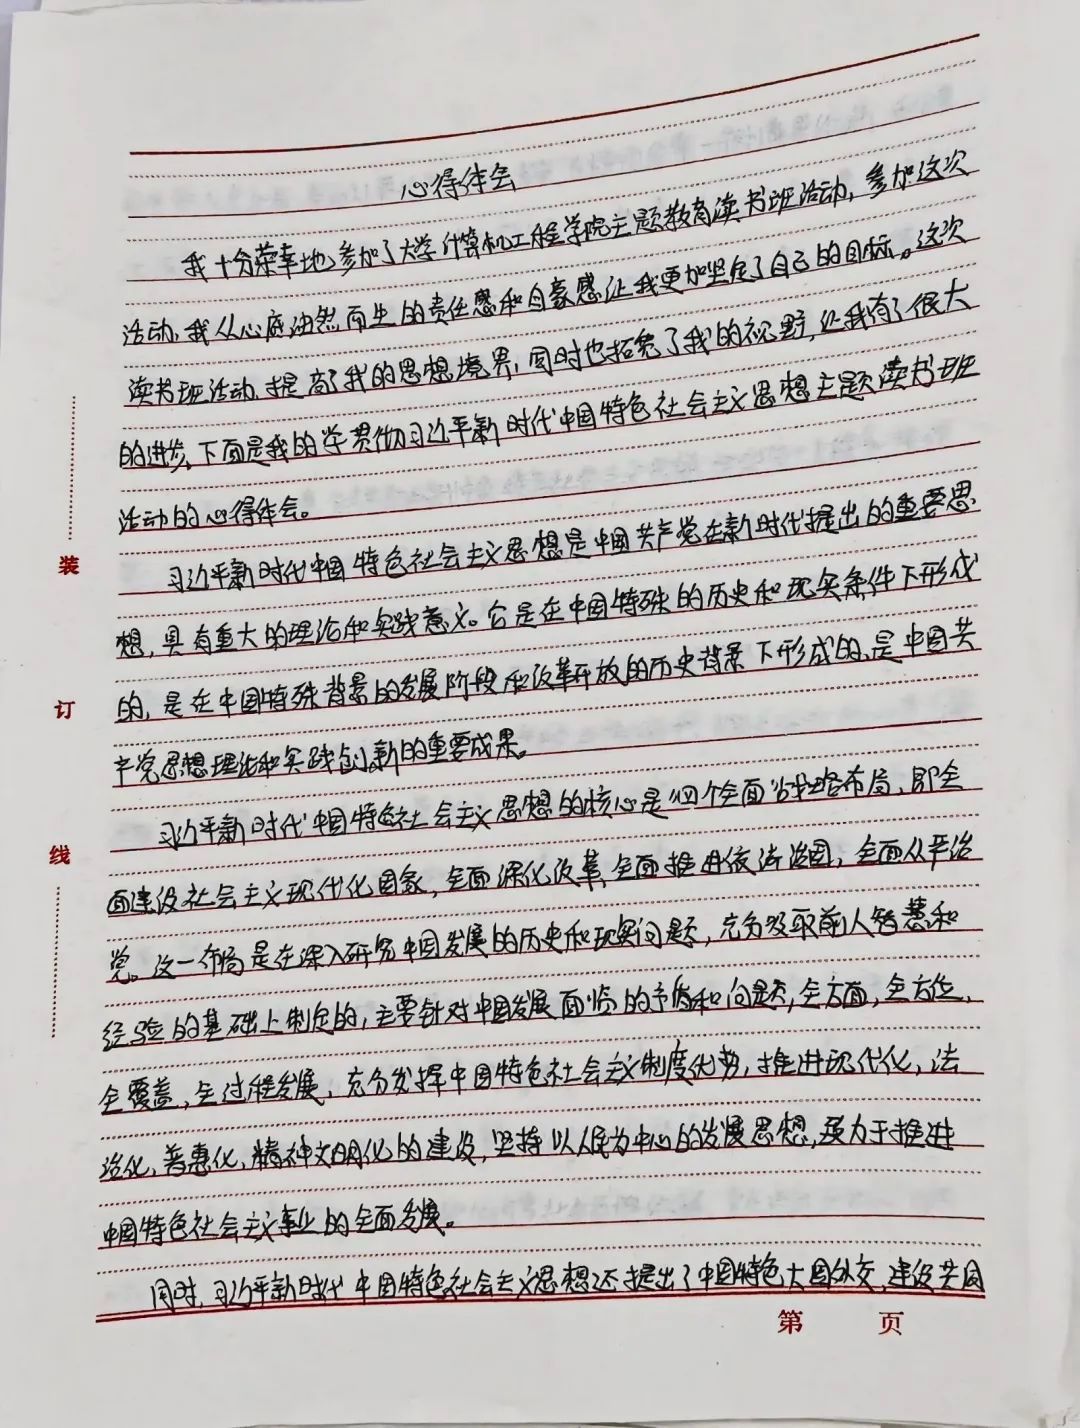 心得体会
我十分荣幸地参加了大学计算机工程学院主题教育读书班活动，参加这次
活动，我从心底油然而生的责任感和自豪感让我更加坚定了自己的目标。这次
读书班活动，提高了我的思想境界，同时也拓宽了我的视野，让我有了很大
的进步，下面是我的学贯彻习近平新时代中国特色社会主义思想主题读书班
活动的心得体会。
习近平新时代中国特色社会主义思想是中国共产党在新时代提出的重要思
想，具有重大的理论和实践意义。它是在中国特殊的历史和现实条件下形成
的，是在中国特殊背景的发展阶段和改革开放的历史背景下形成的，是中国共
产党思想理论和实践创新的重要成果。
习近平新时代中国特色社会主义思想的核心是"四个全面"战略布局，即全
面建设社会主义现代化国家，全面深化改革，全面推进依法治国，全面从严治
党。这一布局是在深入研究中国发展的历史和现实问题，充分吸取前人智慧和
经验的基础上制定的，主要针对中国发展面临的矛盾和问题，全方面，全方位，
全覆盖，全过程发展，充分发挥中国特色社会主义制度优势，推进现代化，法
治化，普惠化，精神文明化的建设，坚持以人民为中心的发展思想，致力于推进
中国特色社会主义事业的全面发展。
同时，习近平新时代中国特色社会主义思想还提出了中国特色大国外交，建设共同
装
订
线
第 页